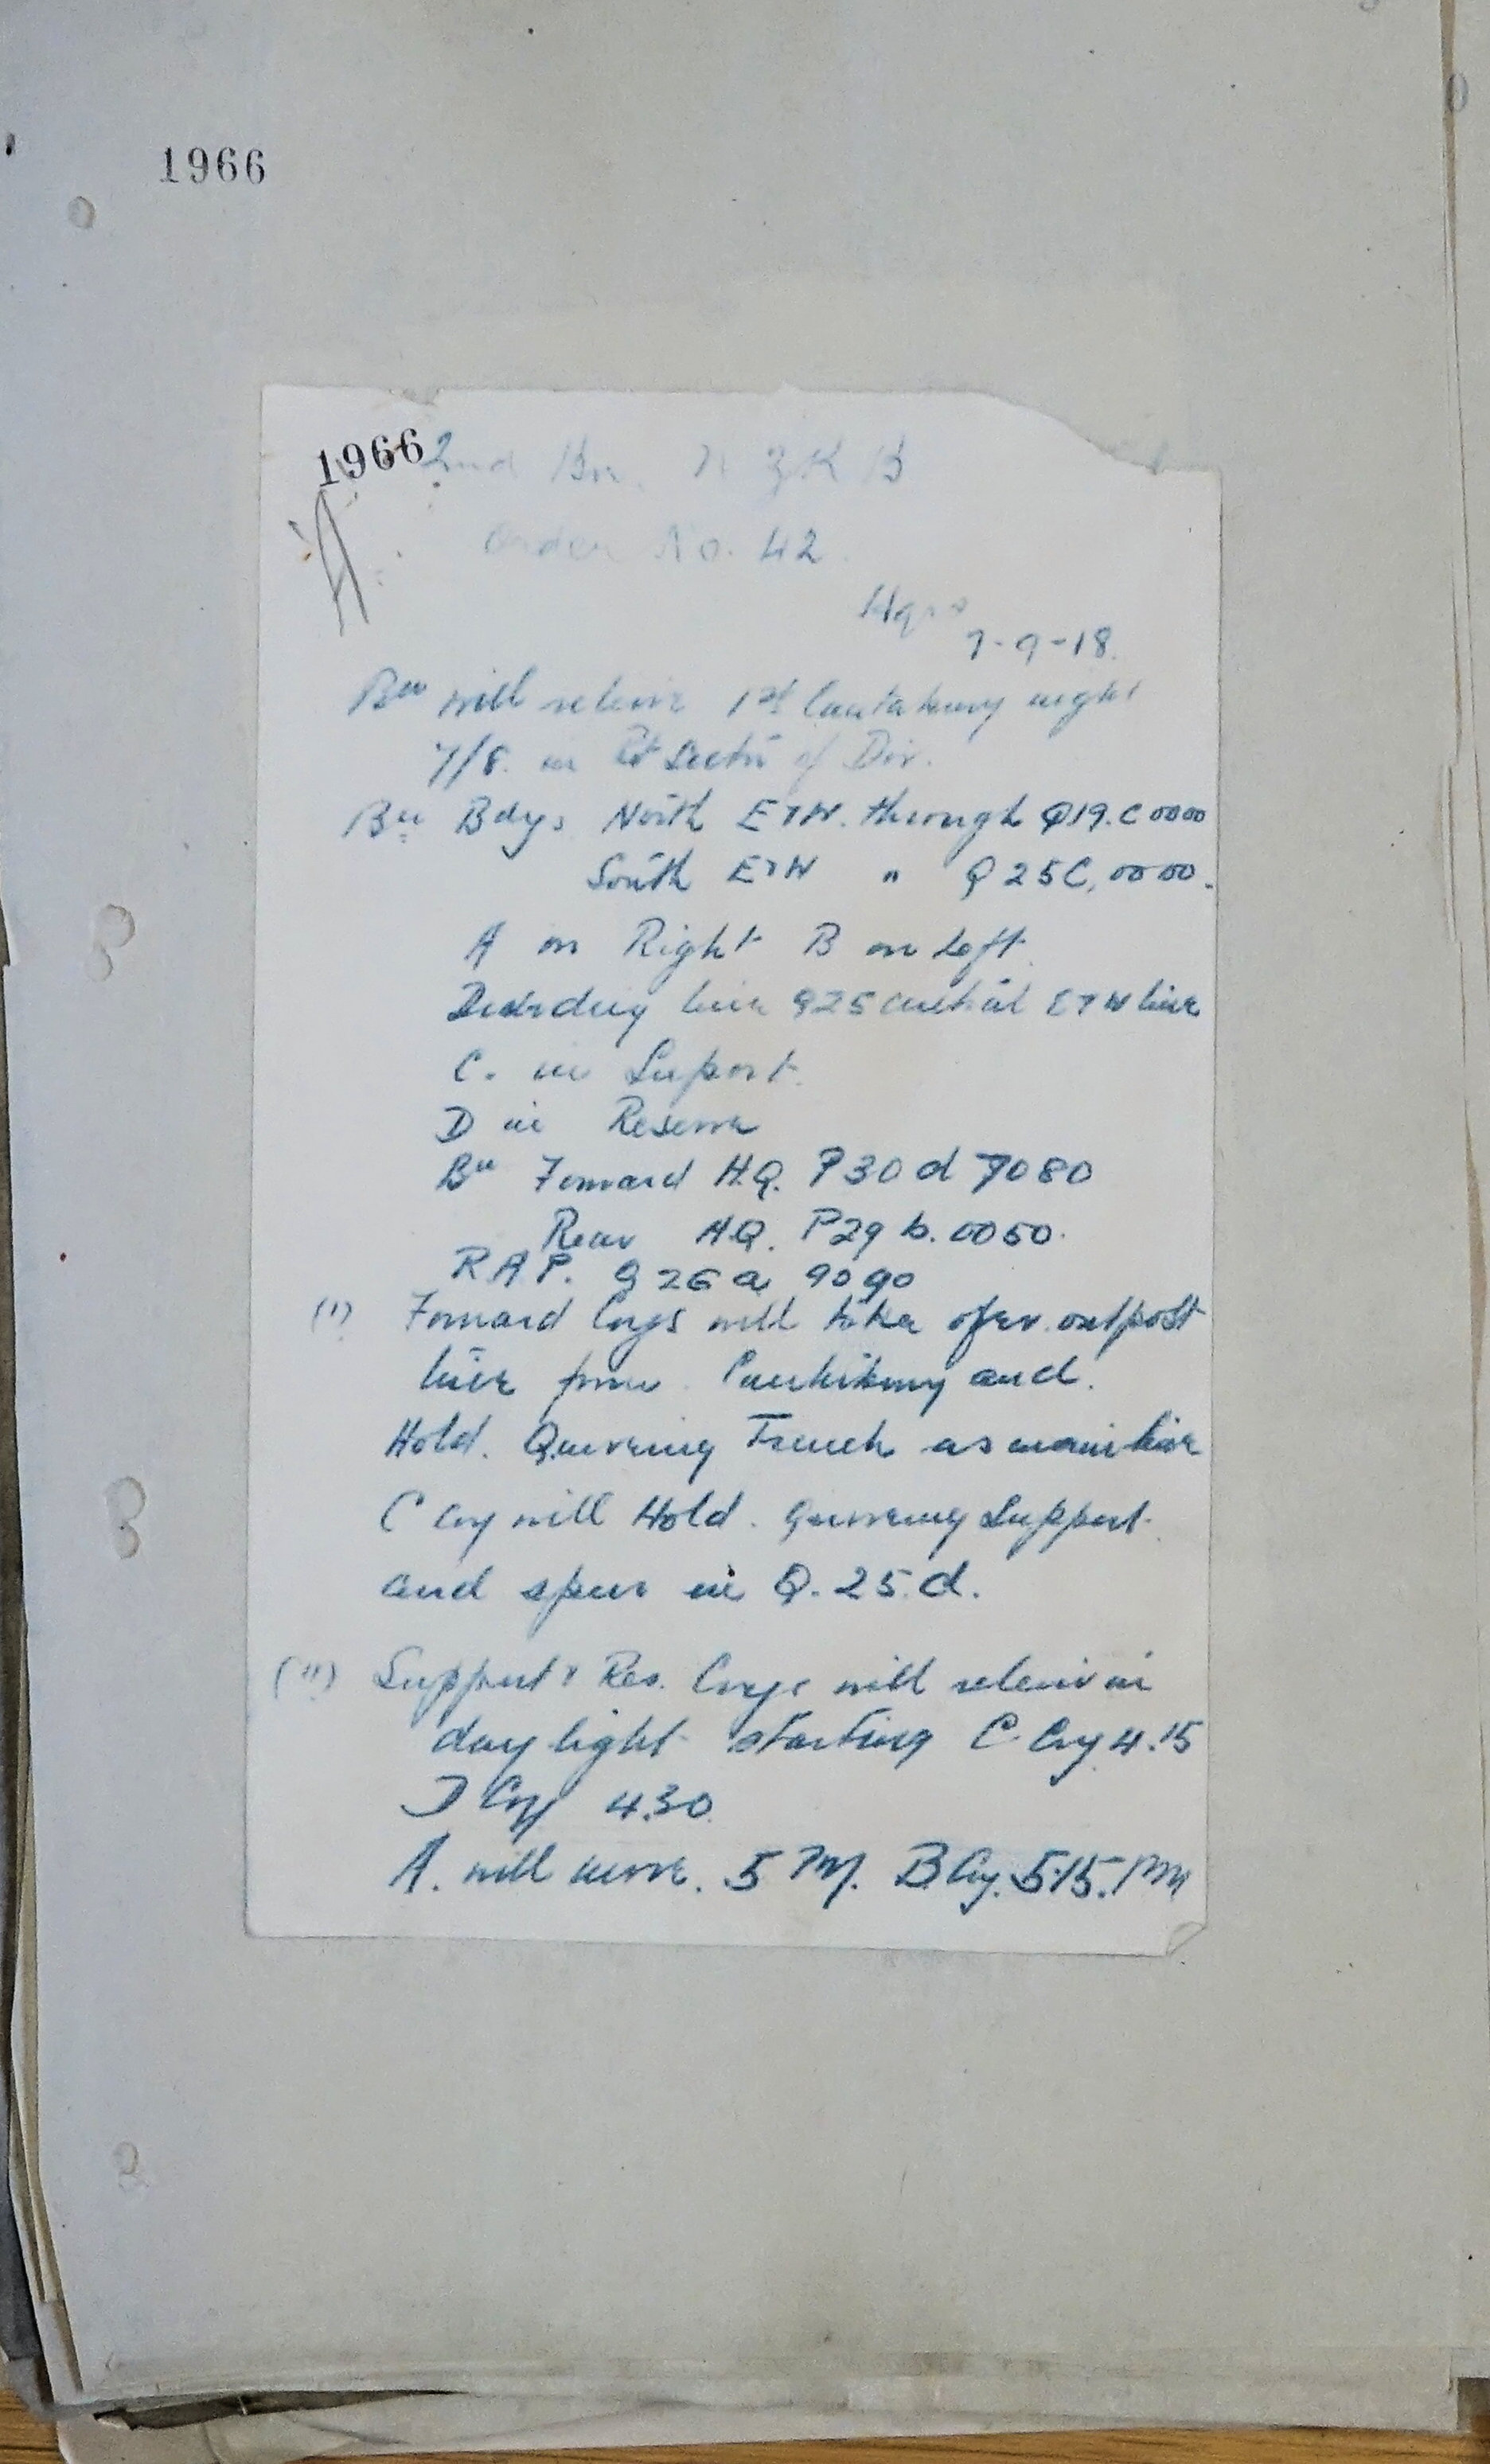 1966
1966
2nd Bn. N Z R B
Order No. 42
Hqrs
7-9-18.
Bn will releive 1st Cantabury night
7/8. in Rt Sector of Div.
Bn Bdys North E & W. through Q19.C 0000
South E & W " Q 25C, 0000.
A on Right B on Left.
Dividing line Q25 central E & W line
C. in Suport.
D in Reserve
Bn Forward H.Q. P30 d 7080
Rear HQ. P29 b. 0050.
R A P. Q 26 a 9090
(1) Forward Coys will take over outpost
line from Cantabury and.
Hold. Quering Trench as main line
C Coy will Hold. Support
and spur in Q. 25.d.
(11) Support & Res. Coys will releive in
day light starting C Coy 4.15
D Coy 4.30.
A. will move. 5 PM. B Coy. 5.15. PM